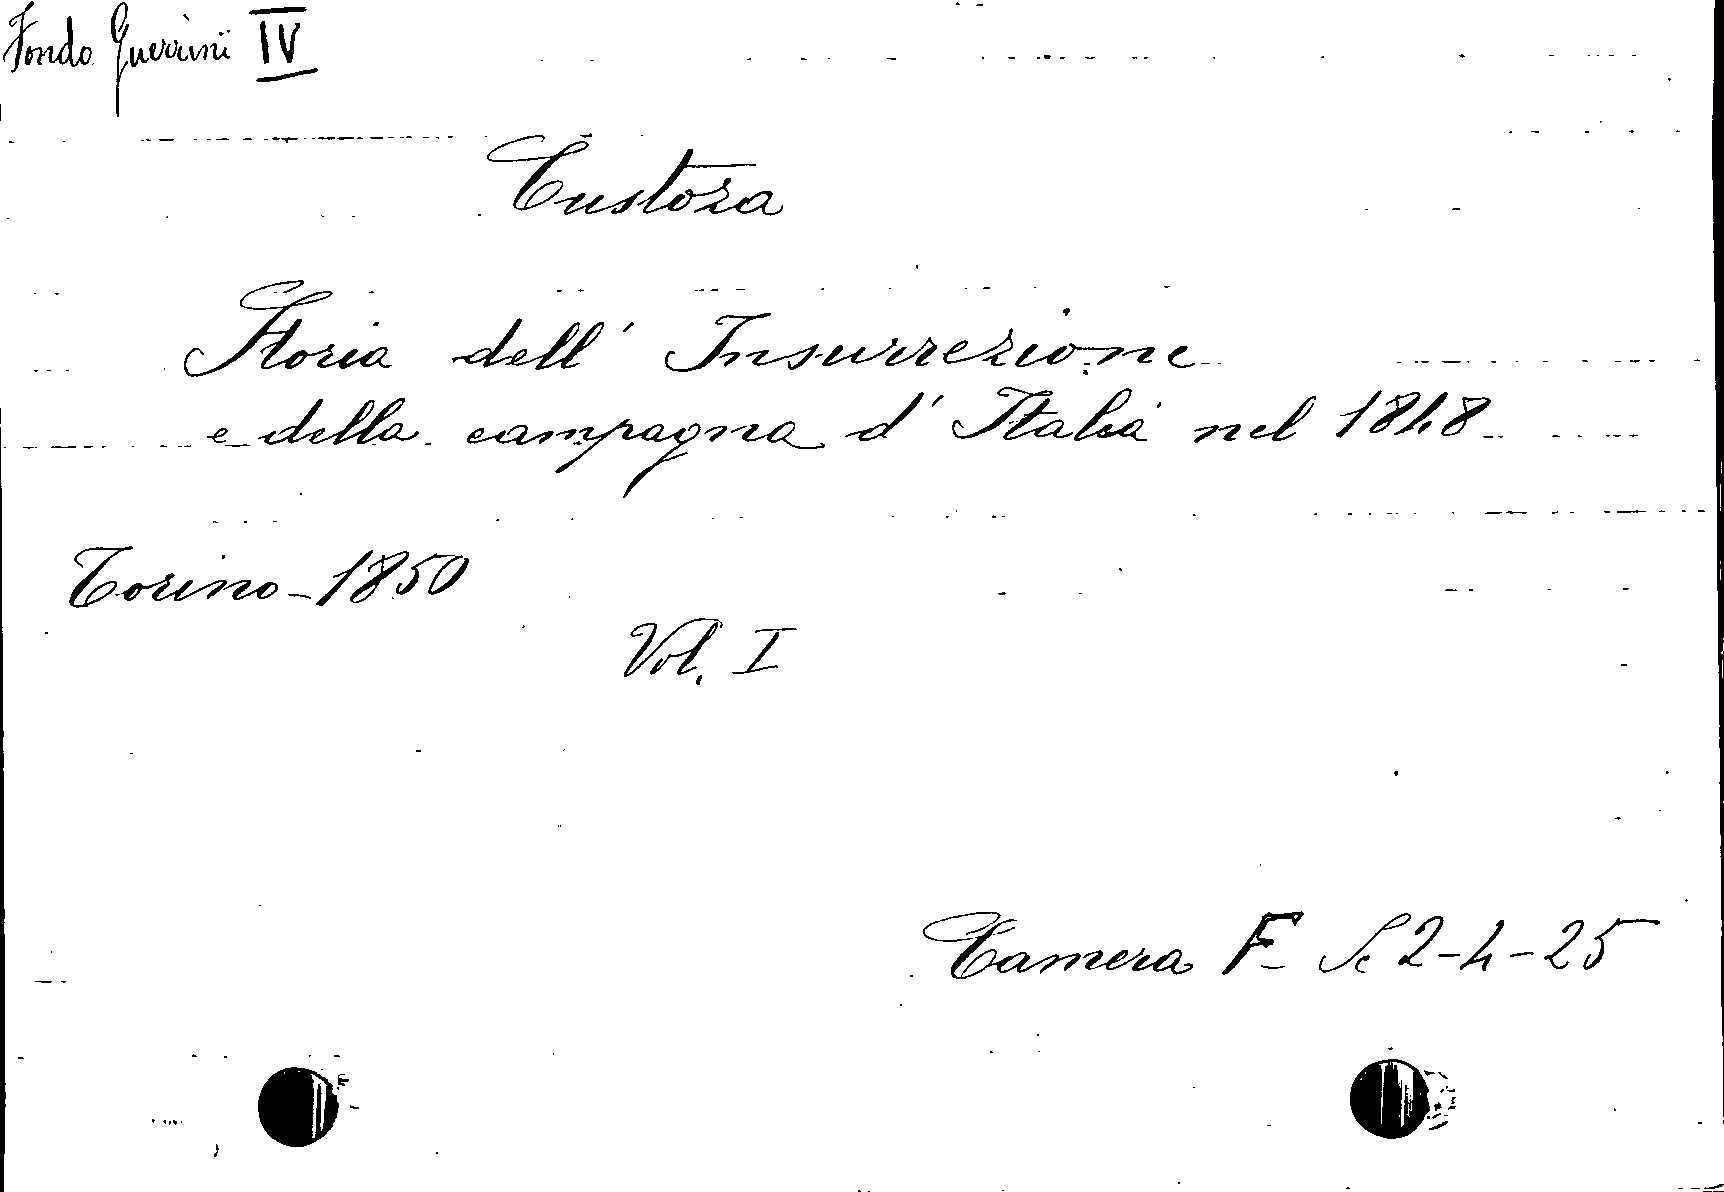 Fondo Guerrini IV
Custoza
Storia dell' Insurrezione
e della campagna d' Italia nel 1848
Torino - 1850
Vol. I
Camera F - Sc 2-4-25